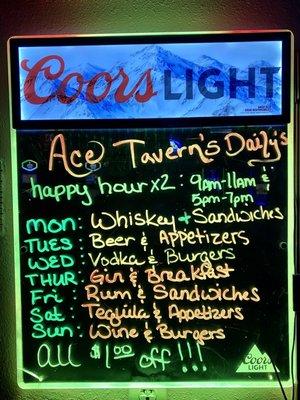 Coors LIGHT
Ace Tavern's Daily's
happy hour x2 : 9am-11am &
5pm-7pm
Mon: Whiskey + Sandwiches
TUES: Beer & Appetizers
WED: Vodka & Burgers
THUR: Gin & Breakfast
Fri: Rum & Sandwiches
Sat: Tequila & Appetizers
Sun: Wine & Burgers
all $1.00 off !!!
Coors
LIGHT